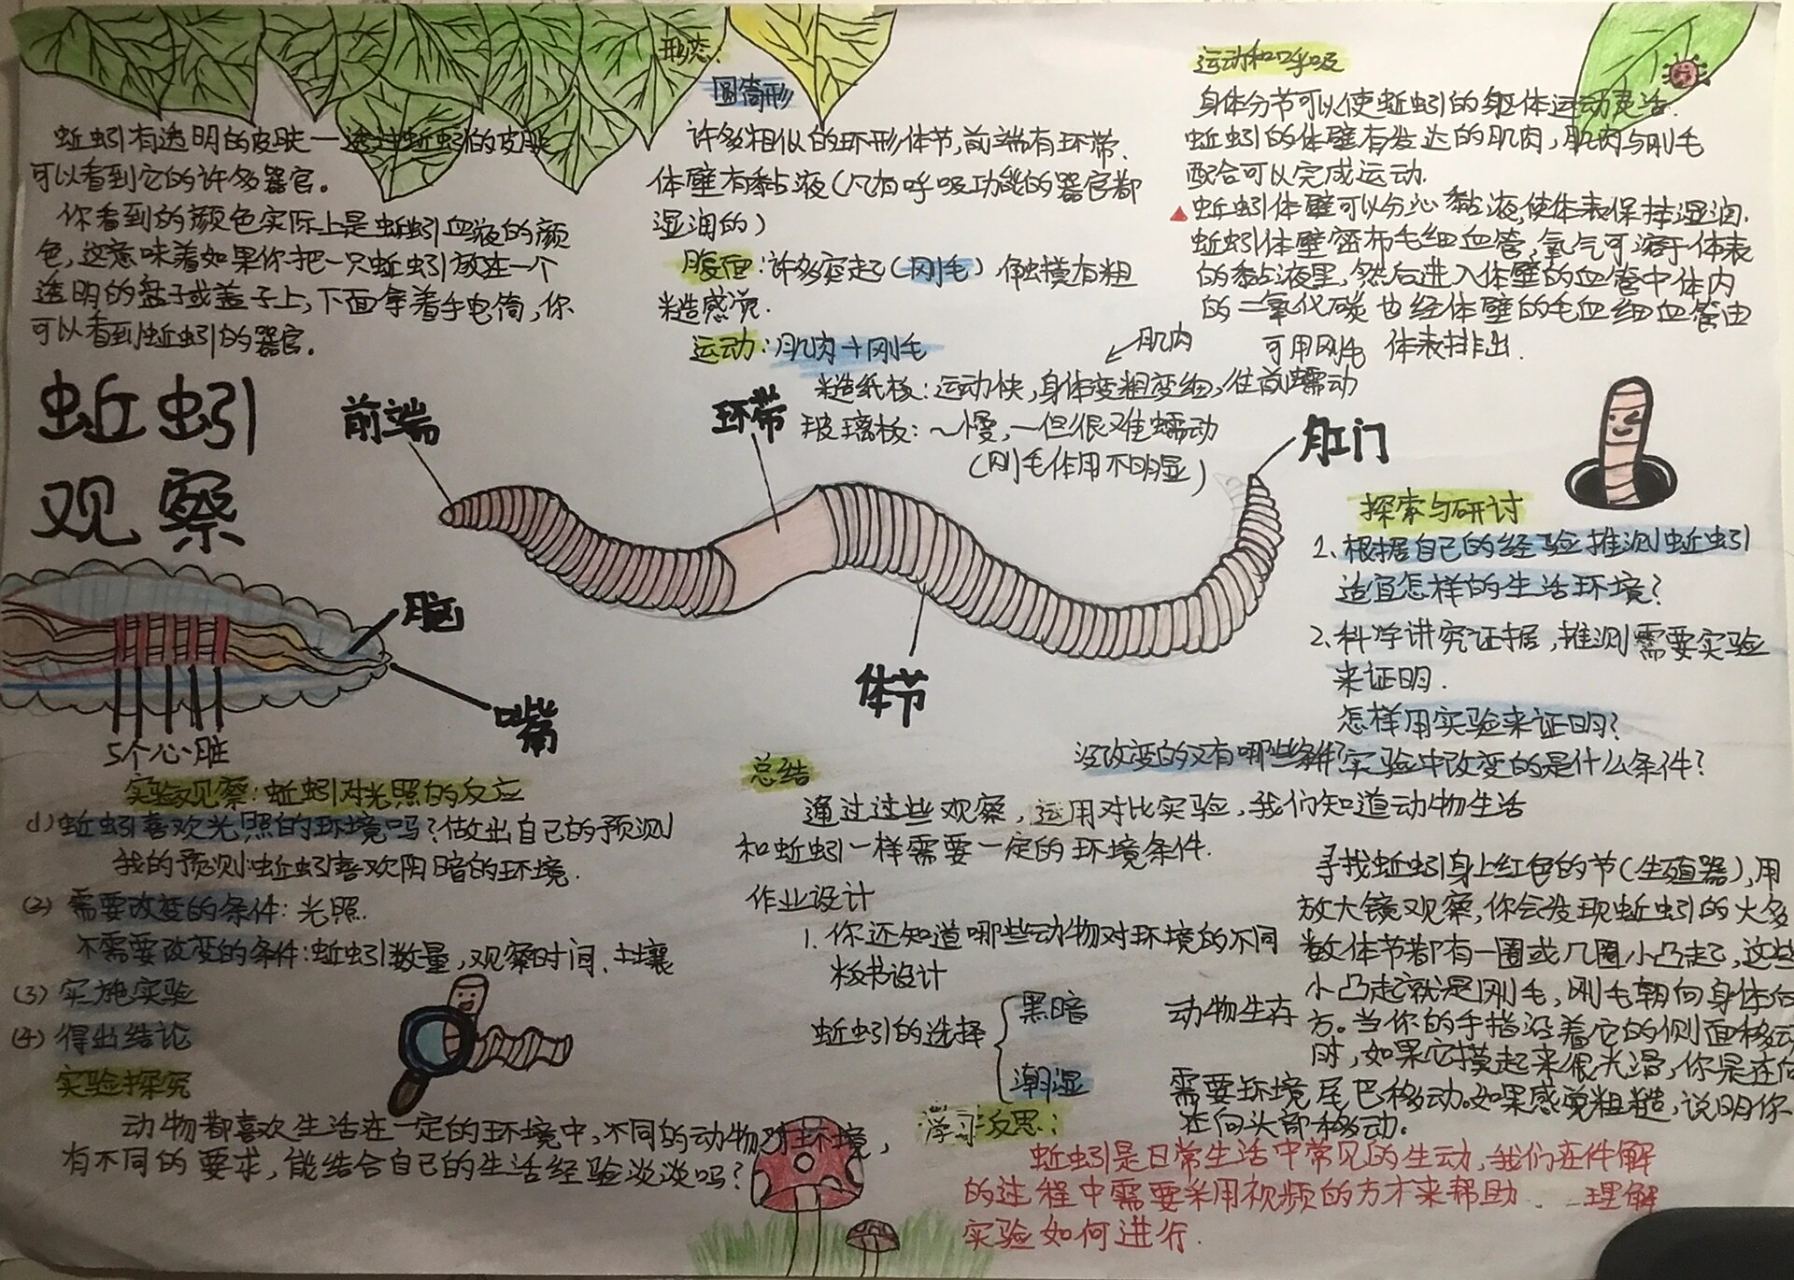 蚯蚓有透明的皮肤—透过蚯蚓的皮肤
可以看到它的许多器官。
你看到的颜色实际上是蚯蚓血液的颜
色,这意味着如果你把一只蚯蚓放在一个
透明的盘子或盖子上,下面拿着手电筒,你
可以看到蚯蚓的器官。
蚯蚓
观察
形态:
圆筒形
许多相似的环形体节,前端有环带.
体壁有黏液(凡有呼吸功能的器官都
湿润的)
腹面:许多突起(刚毛) 触摸有粗
糙感觉.
运动:肌肉+刚毛
肌肉
糙纸板:运动快,身体变粗变细,往前蠕动
玻璃板:~慢,—但很难蠕动
(刚毛作用不明显)
可用刚毛
运动和呼吸
身体分节可以使蚯蚓的躯体运动灵活.
蚯蚓的体壁有发达的肌肉,肌肉与刚毛
配合可以完成运动.
▲蚯蚓体壁可以分沁黏液,使体表保持湿润.
蚯蚓体壁密布毛细血管,氧气可溶于体表
的黏液里,然后进入体壁的血管中体内
的二氧化碳也经体壁的毛血细血管由
体表排出.
前端
环带
肛门
体节
脑
嘴
5个心脏
探索与研讨
1.根据自己的经验推测蚯蚓
适宜怎样的生活环境?
2.科学讲究证据,推测需要实验
来证明.
怎样用实验来证明?
实验中改变的是什么条件?
没改变的又有哪些条件?
实验观察:蚯蚓对光照的反应
(1)蚯蚓喜欢光照的环境吗?做出自己的预测
我的预测:蚯蚓喜欢阴暗的环境.
(2)需要改变的条件:光照.
不需要改变的条件:蚯蚓数量,观察时间、土壤
(3)实施实验
(4)得出结论
实验探究
动物都喜欢生活在一定的环境中,不同的动物对环境,
有不同的要求,能结合自己的生活经验谈谈吗?
总结
通过这些观察,运用对比实验,我们知道动物生活
和蚯蚓一样需要一定的环境条件.
作业设计
1.你还知道哪些动物对环境的不同
板书设计
蚯蚓的选择
黑暗
潮湿
动物生存
需要环境
寻找蚯蚓身上红色的节(生殖器),用
放大镜观察,你会发现蚯蚓的大多
数体节都有一圈或几圈小凸起,这些
小凸起就是刚毛,刚毛朝向身体后
方。当你的手指沿着它的侧面移动
时,如果它摸起来很光滑,你是在向
尾巴移动。如果感觉粗糙,说明你
在向头部移动.
学习反思:
蚯蚓是日常生活中常见的生动,我们在件解
的过程中需要采用视频的方才来帮助 理解
实验如何进行.